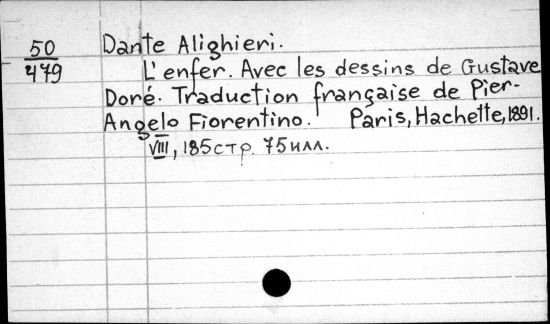 50
479
Dante Alighieri.
L'enfer. Avec les dessins de Gustave
Doré. Traduction française de Pier-
Angelo Fiorentino. Paris, Hachette, 1891.
VIII, 185 стр. 75 илл.